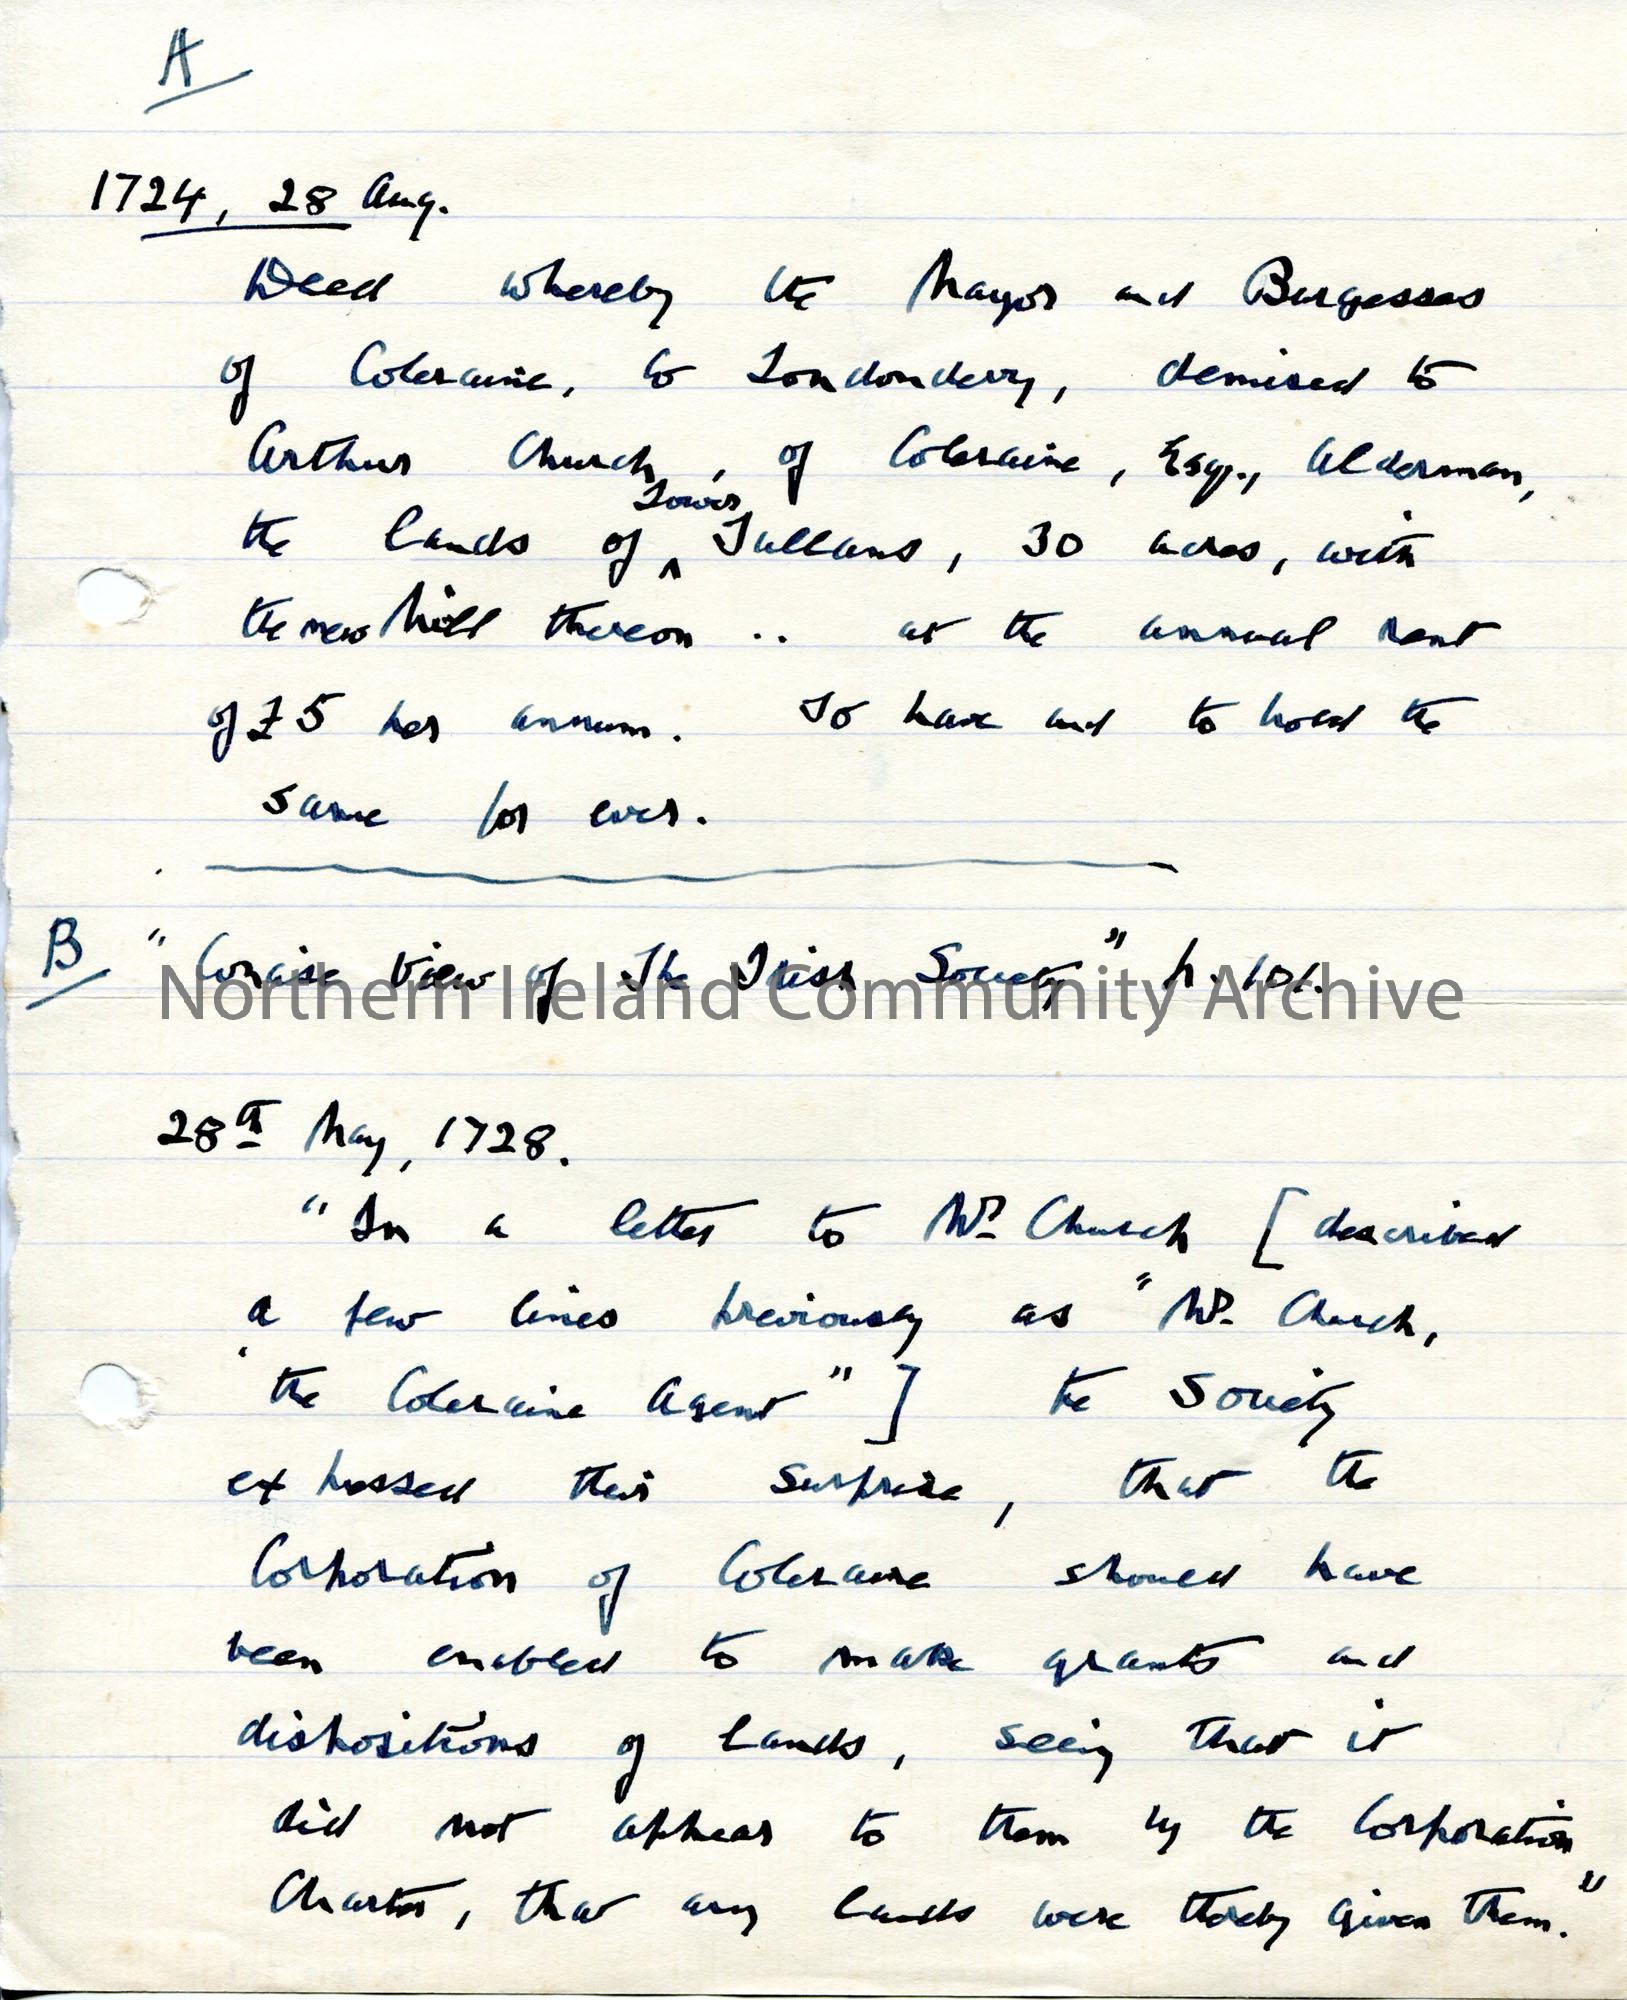 A
1724, 28 Aug.
Deed whereby the Mayor and Burgesses
of Coleraine, Co Londonderry, demised to
Arthur Church, of Coleraine, Esq., Alderman,
Lower
the lands of Tullans, 30 acres, with
the new Mill thereon .. at the annual rent
of £5 per annum. To have and to hold the
same for ever.
B "Concise View of The Irish Society" p. 101.
Northern Ireland Community Archive
28th May, 1728.
"In a letter to Mr Church [described
a few lines previously as "Mr. Church,
the Coleraine Agent"] the Society
expressed their surprise, that the
Corporation of Coleraine should have
been enabled to make grants and
dispositions of lands, seeing that it
did not appear to them by the Corporation
Charter, that any lands were thereby given them."